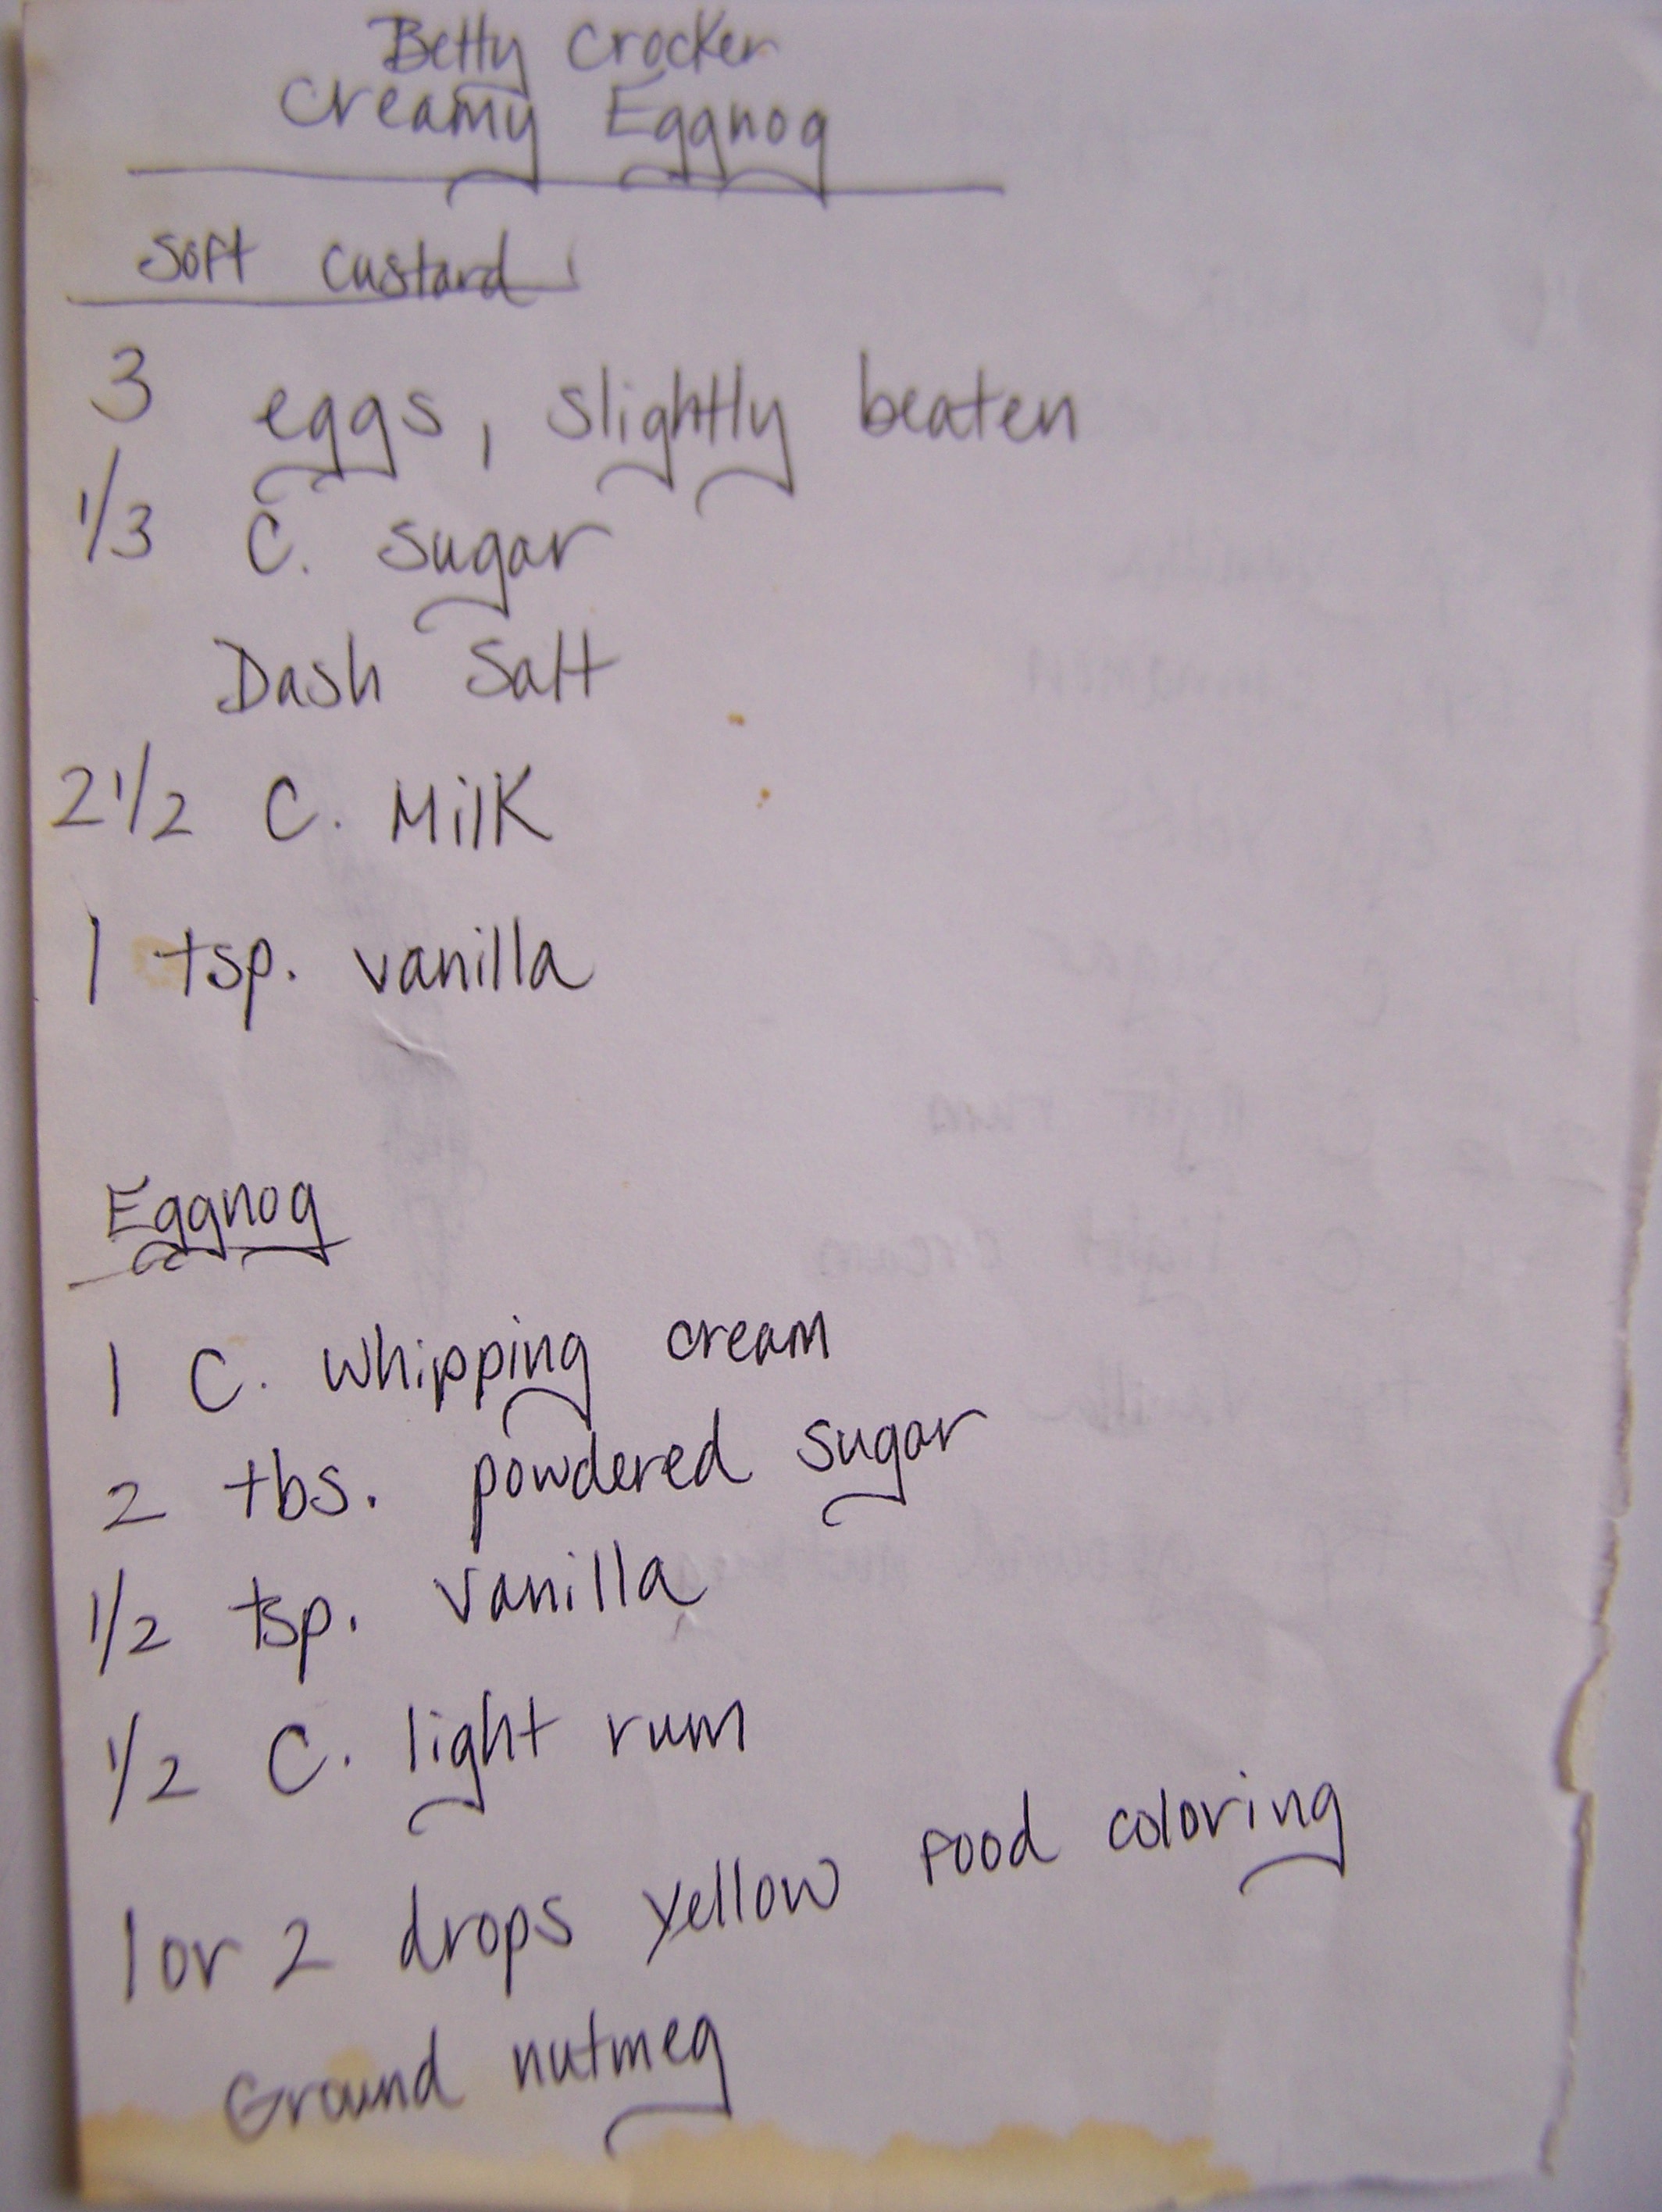 Betty Crocker
Creamy Eggnog
Soft Custard
3 eggs, slightly beaten
1/3 C. Sugar
Dash Salt
2 1/2 C. Milk
1 tsp. vanilla
Eggnog
1 C. whipping cream
2 tbs. powdered sugar
1/2 tsp. vanilla
1/2 C. light rum
1 or 2 drops yellow food coloring
Ground nutmeg